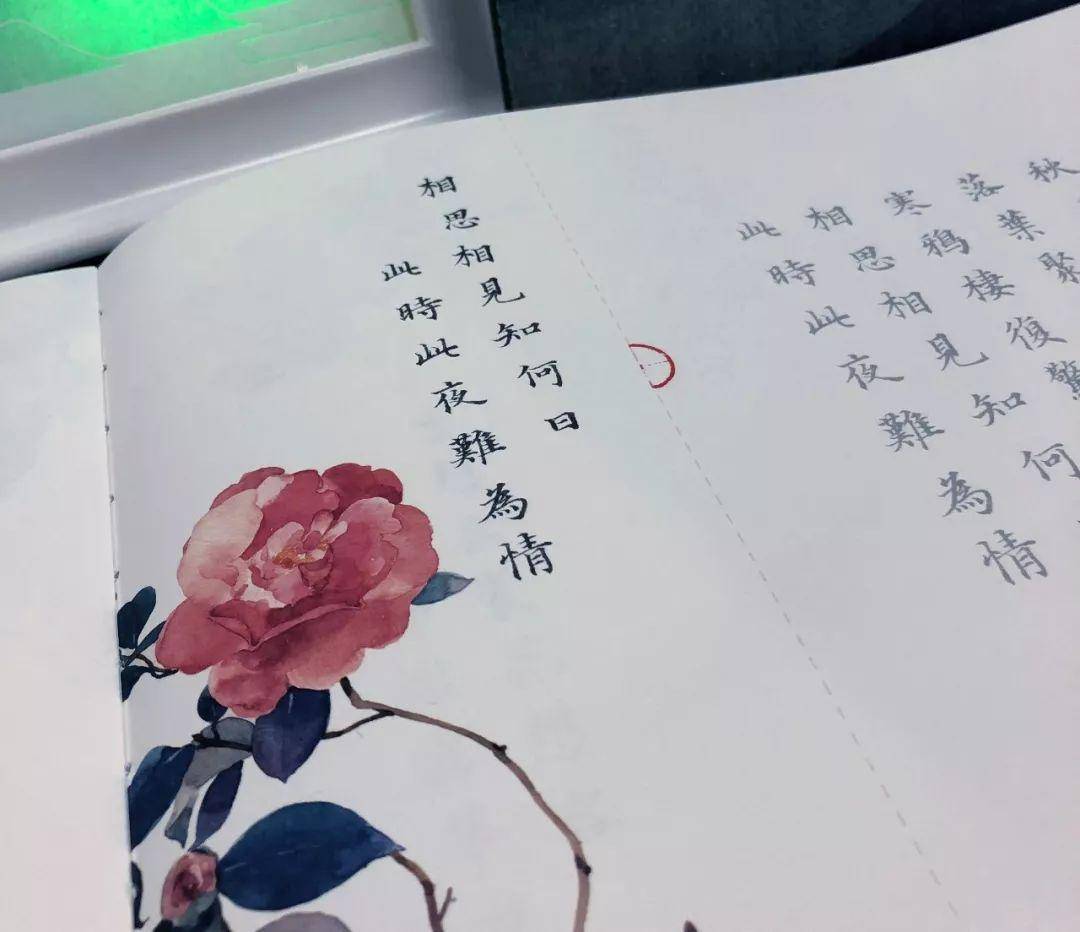 秋
落葉聚
寒鴉棲復驚
相思相見知何
此時此夜難為情
相思相見知何日
此時此夜難為情